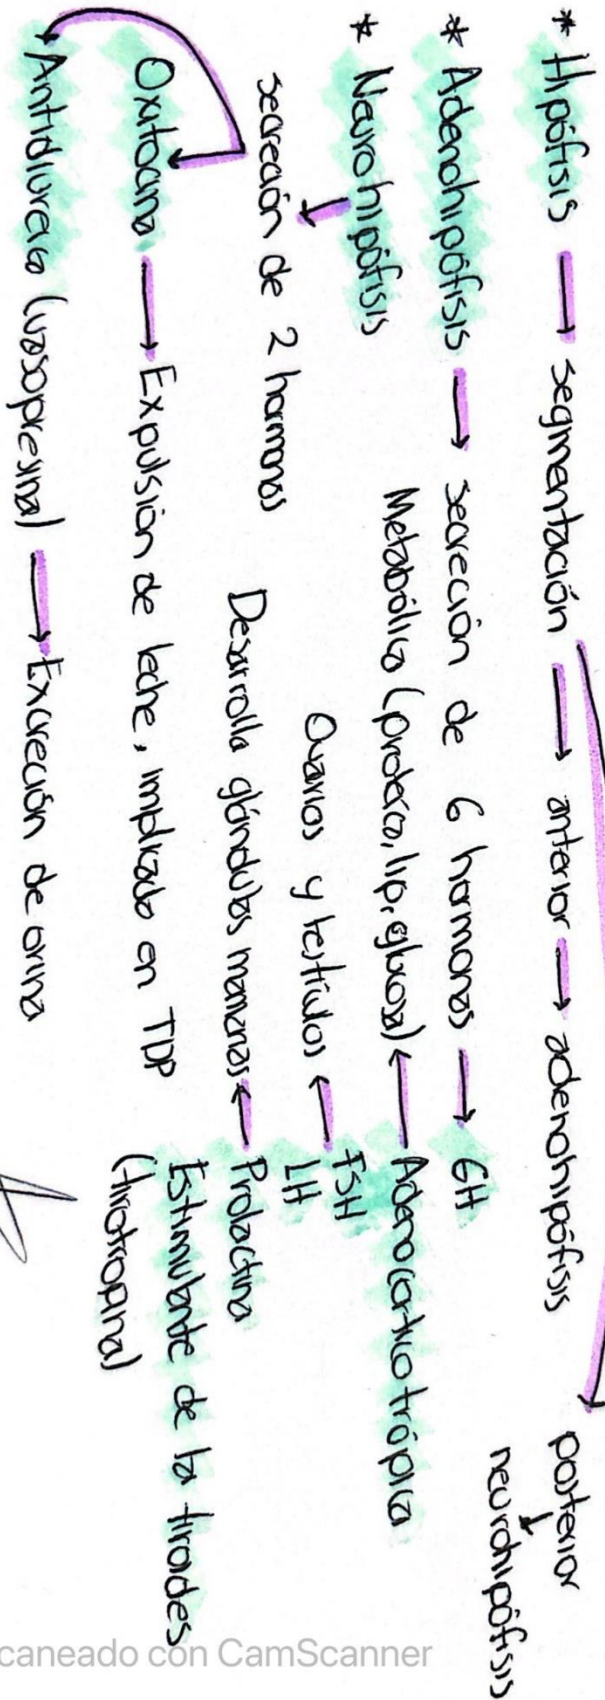 * Hipófisis → segmentación → anterior → adenohipófisis
posterior
↓
neurohipófisis
* Adenohipófisis → secreción de 6 hormonas → GH
Metabólica (proteica, lip, glucosa) ← Adenocorticotrópica
* Neurohipófisis
Ovarios y testículos ← FSH
LH
secreción de 2 hormonas
Desarrolla glándulas mamarias ← Prolactina
Estimulante de la tiroides
(tirotropina)
Oxitocina → Expulsión de leche, implicado en TDP
Antidiurética (vasopresina) → Excreción de orina
caneado con CamScanner